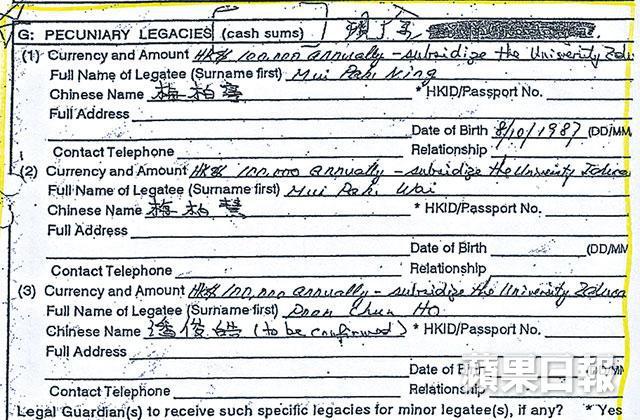 G: PECUNIARY LEGACIES (cash sums)
(1) Currency and Amount HK$ 100,000 annually - subsidize the University Edu
Full Name of Legatee (Surname first) Mui Pak Ning
Chinese Name 梅柏寧 * HKID/Passport No.
Full Address
Date of Birth 8/10/1987 (DD/MM
Contact Telephone Relationship
(2) Currency and Amount HK$ 100,000 annually - subsidize the University Educa
Full Name of Legatee (Surname first) Mui Pak Wai
Chinese Name 梅柏慧 * HKID/Passport No.
Full Address
Date of Birth (DD/MM
Contact Telephone Relationship
(3) Currency and Amount HK$ 100,000 annually - subsidize the University Educa
Full Name of Legatee (Surname first) Poon Chun Ho
Chinese Name 潘俊皓 (to be confirmed) * HKID/Passport No.
Full Address
Date of Birth (DD/MM
Contact Telephone Relationship
蘋果日報
Legal Guardian(s) to receive such specific legacies for minor legatee(s), if any? * Yes